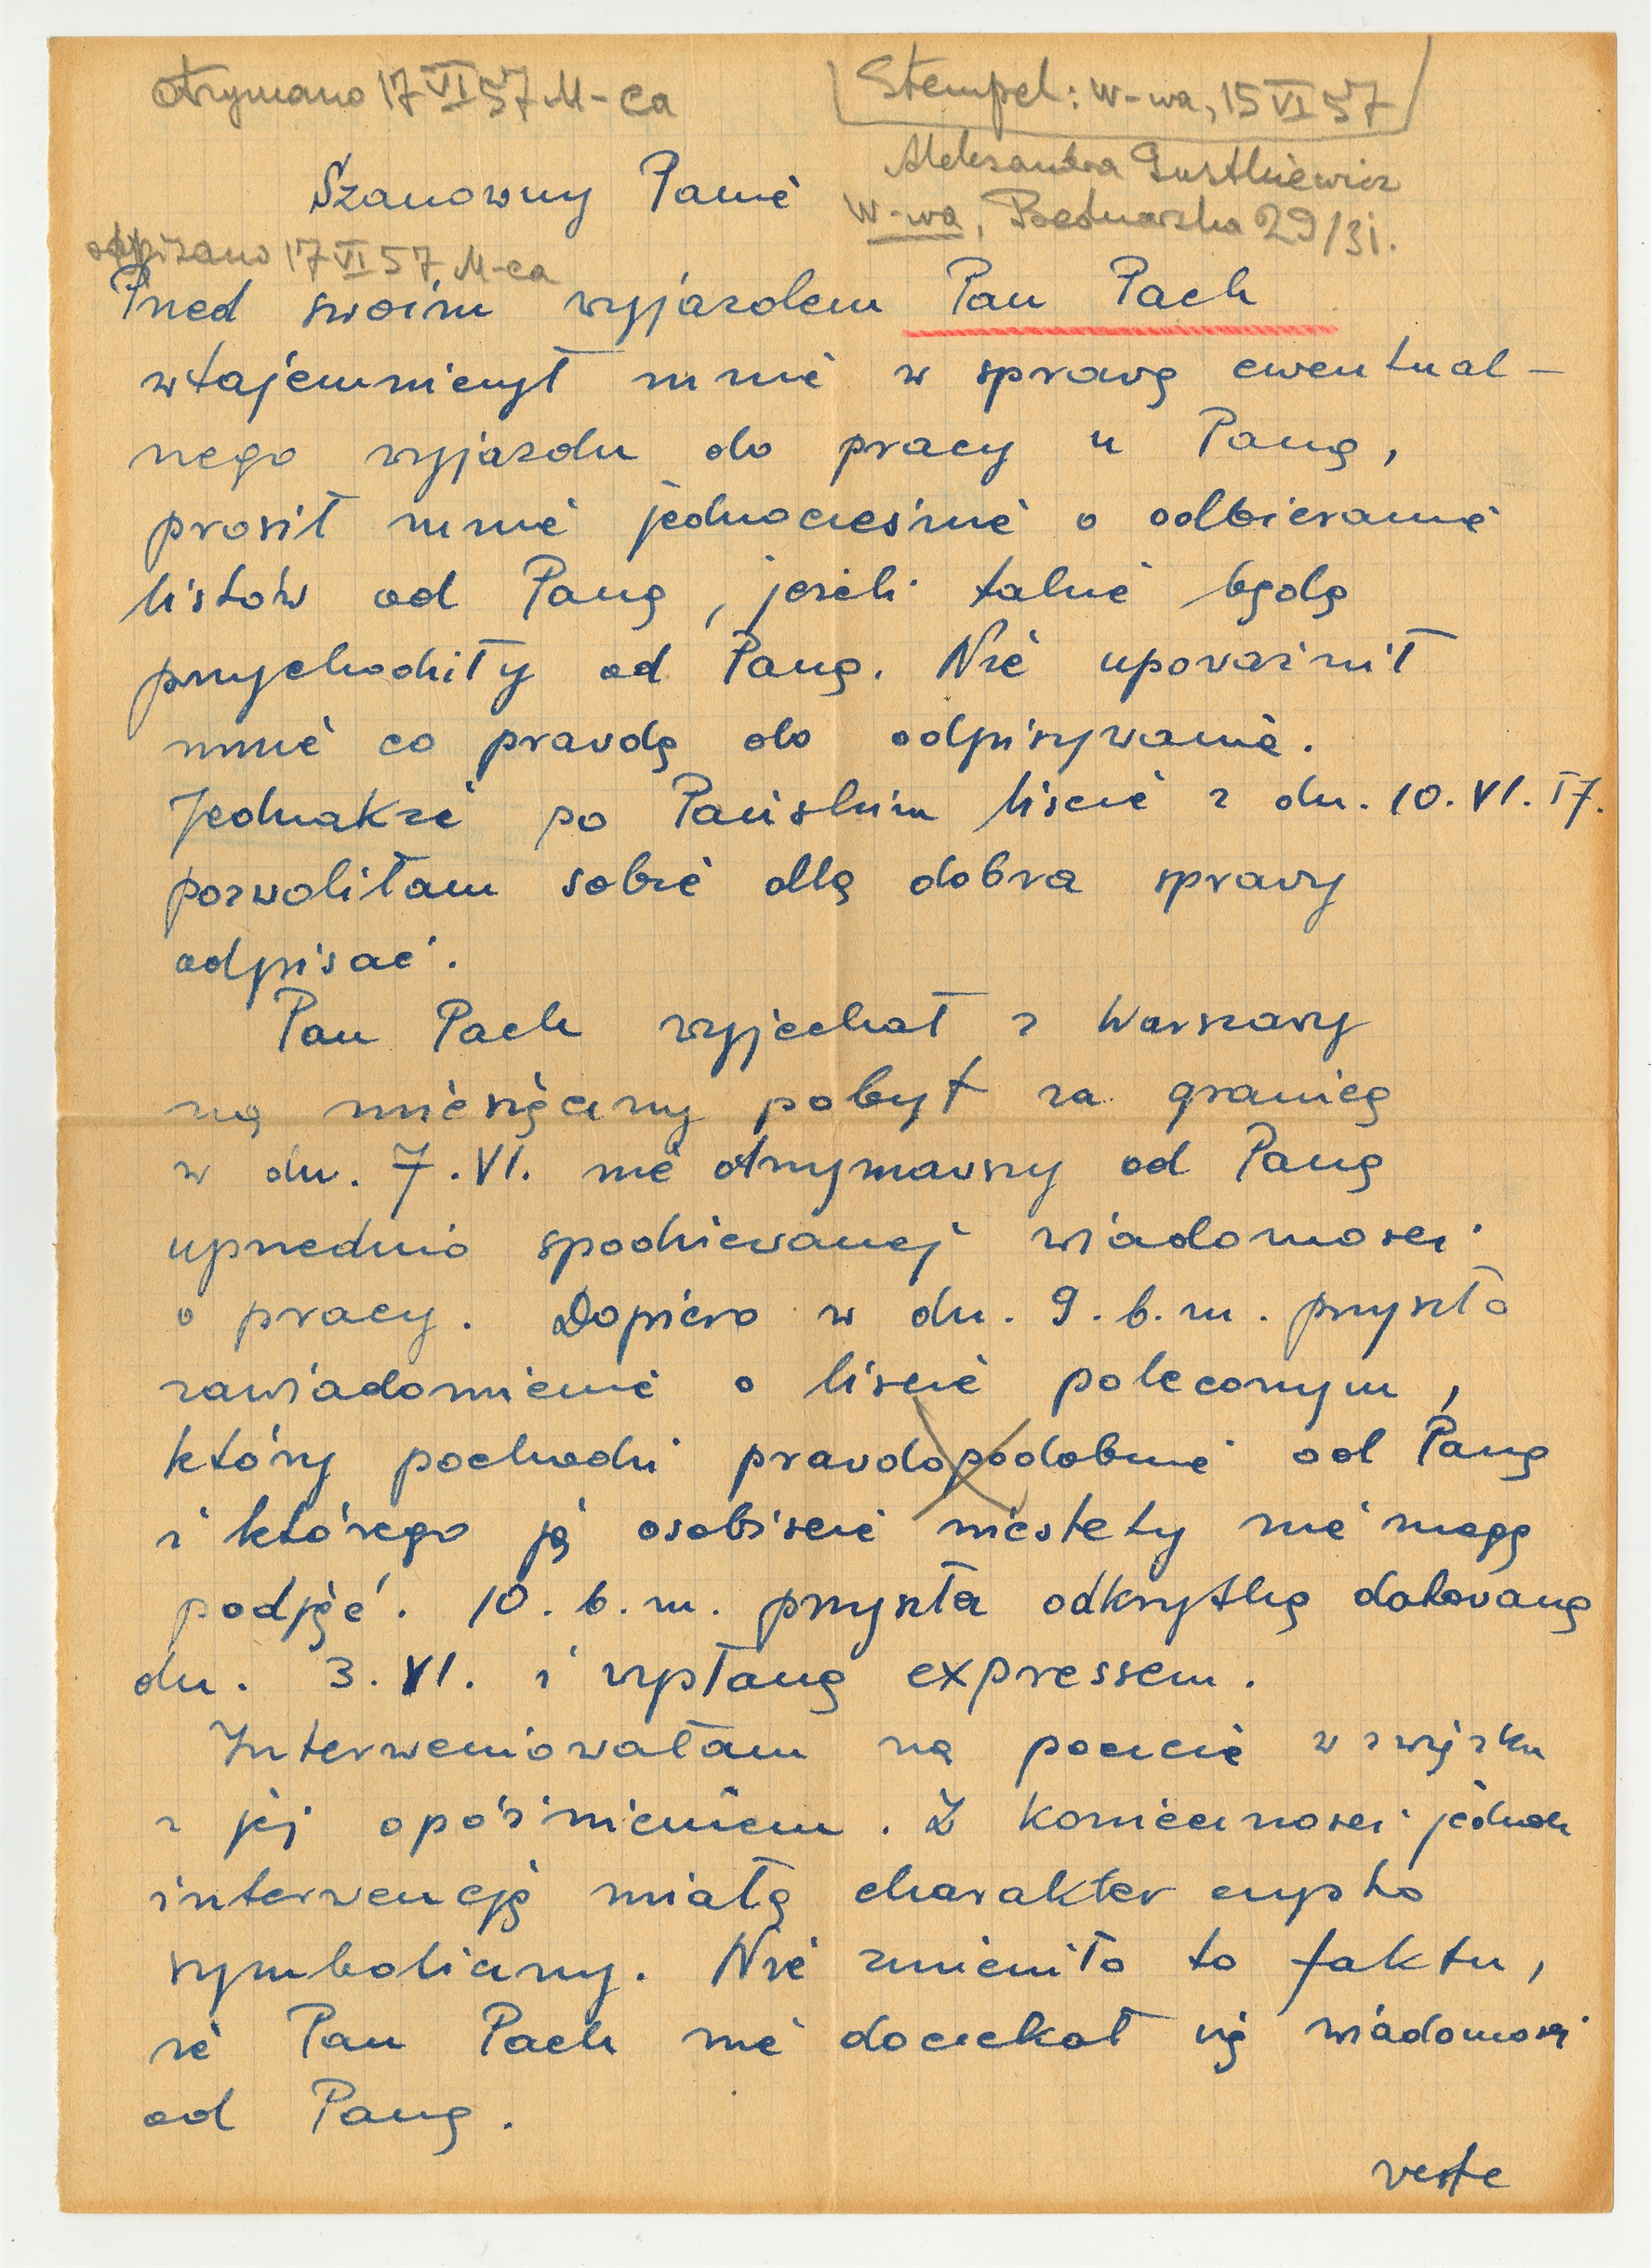 otrzymano 17 VI 57 M-ca
Stempel: W-wa, 15 VI 57
Aleksandra Gustkiewicz
W-wa, Bednarska 29/31.
Szanowny Panie
odpisano 17 VI 57 M-ca
Przed swoim wyjazdem Pan Pach
wtajemniczył mnie w sprawę ewentual-
nego wyjazdu do pracy u Pana,
prosił mnie jednocześnie o odbieranie
listów od Pana, jeżeli takie będą
przychodziły od Pana. Nie upoważnił
mnie co prawda do odpisywania.
Jednakże po Pańskim liście z dn. 10. VI. 57.
pozwoliłam sobie dla dobra sprawy
odpisać.
Pan Pach wyjechał z Warszawy
na miesięczny pobyt za granicę
w dn. 7. VI. nie otrzymawszy od Pana
uprzednio spodziewanej wiadomości
o pracy. Dopiero w dn. 9. b. m. przyszło
zawiadomienie o liście poleconym,
który pochodzi prawdopodobnie od Pana
i którego ja osobiście niestety nie mogę
podjąć. 10. b. m. przyszła odkrytka datowana
dn. 3. VI. i wysłana expressem.
Interweniowałam na poczcie w związku
z jej opóźnieniem. Z konieczności jednak
interwencja miała charakter czysto
symboliczny. Nie zmieniło to faktu,
że Pan Pach nie doczekał się wiadomości
od Pana.
verte